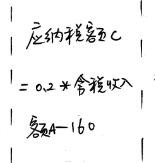 应纳税额C
=0.2*含税收入
额A-160